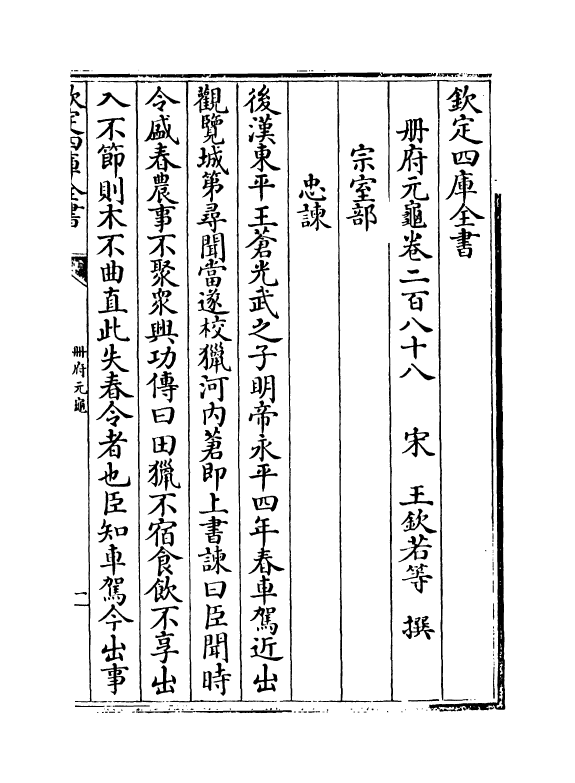 欽定四庫全書
册府元龜卷二百八十八　宋　王欽若等　撰
宗室部
忠諫
後漢東平王蒼光武之子明帝永平四年春車駕近出
觀覽城第尋聞當遂校獵河内蒼即上書諫曰臣聞時
令盛春農事不聚衆興功傳曰田獵不宿食飲不享出
入不節則木不曲直此失春令者也臣知車駕今出事
欽定四庫全書
册府元龜